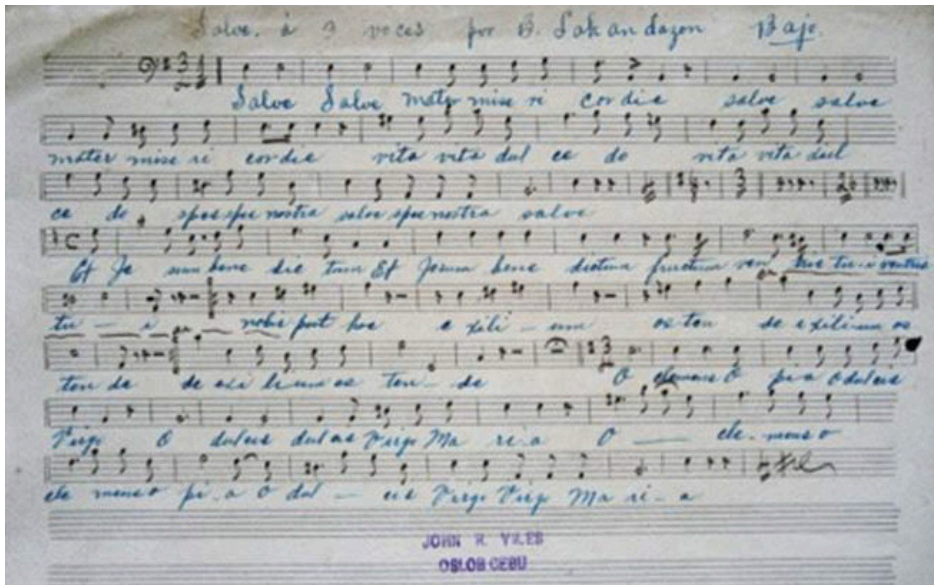 Salve. à 3 voces por B. Sakandazon Bajo.
Salve Salve mater mise ri cor die salve salve
mater mise ri cor die vita vita dul ce do vita vita dul
ce do spes spes nostra salve spes nostra salve
Et Je sum bene dic tum Et Jesum bene dictum fructum ven tris tu-i ventris
tu - i nobis post hoc e xili - um os ten de exilium os
ten de de exi lium os ten - de O clemens O pi a O dulcis
Virgo O dulcis dulcis Virgo Ma ri-a O ele-mens o
ele mens o pi-a O dul - cis Virgo Virgo Ma ri-a
JOHN R. YALES
OSLOB CEBU